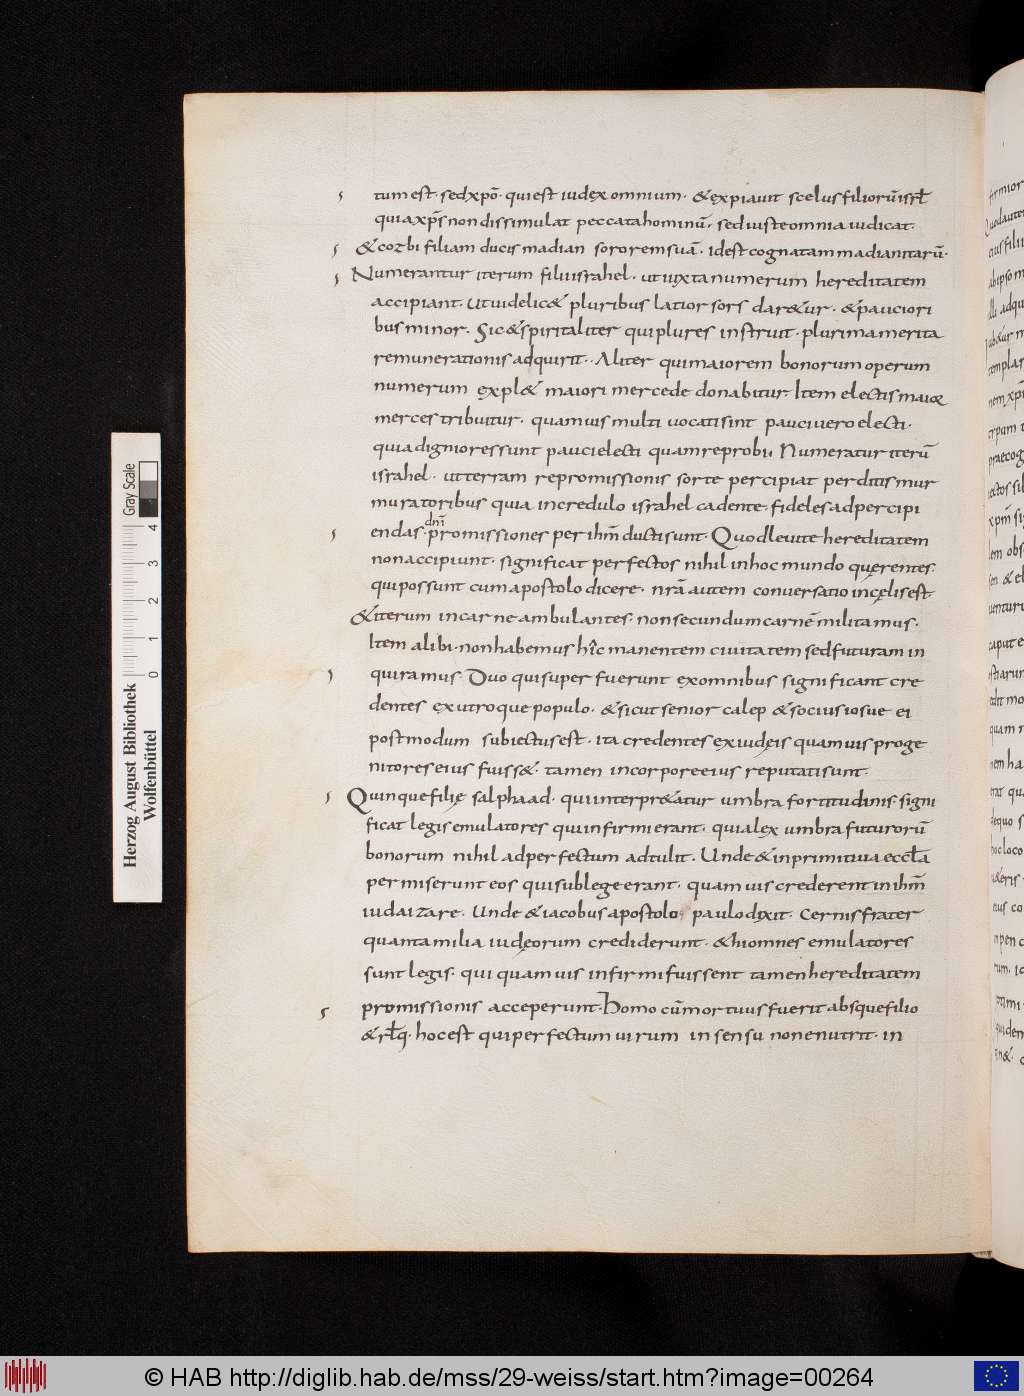 tum est· sed xpō· qui est iudex omnium· & expiauit scelus filiorū isrƚ
quia xp̄s non dissimulat peccata hominū, sed iuste omnia iudicat·
& cozbi filiam ducis madian sororem suā· id est cognatam madianitarū·
Numerantur iterum filii israhel· ut iuxta numerum hereditatem
accipiant· ut uidelic& pluribus latior sors dar&ur· & pauciori
bus minor· Sic & spiritaliter qui plures instruit· plurima merita
remunerationis adquirit·· Aliter qui maiorem bonorum operum
numerum expl& maiori mercede donabitur Item electis maior
merces tribuitur· quamuis multi uocati sint pauci uero electi·
quia digniores sunt pauci electi quam reprobi, Numeratur iterū
israhel· ut terram repromissionis sorte percipiat perditis mur
muratoribus quia incredulo israhel cadente· fideles ad percipi
endas· dn̄i promissiones per ihm̄ ducti sunt· Quod leuite hereditatem
non accipiunt· significat perfectos nihil in hoc mundo querentes·
qui possunt cum apostolo dicere· nrā autem conuersatio in cęlis est·
& iterum in carne ambulantes· non secundum carnē militamus·
Item alibi· non habemus hîc manentem ciuitatem sed futuram in
quiramus· Duo qui super fuerunt ex omnibus significant cre
dentes ex utroque populo· & sicut senior calep & socius iosue ei
postmodum subiectus est· ita credentes ex iudęis quamuis proge
nitores eius fuiss&· tamen in corpore eius reputati sunt·
Quinque filię salphaad· qui interpr&atur umbra fortitudinis· signi
ficat legis emulatores qui infirmi erant· quia lex umbra futurorū
bonorum nihil ad perfectum adtulit· Unde & in primitiua eccƚa
permiserunt eos qui sub lege erant· quamuis crederent in ihm̄
iudaizare· Unde & iacobus apostolo paulo dixit· Cernis frater
quanta milia iudęorum crediderunt· & hi omnes emulatores
sunt legis· qui quamuis infirmi fuissent tamen hereditatem
promissionis acceperunt· Homo cū mortuus fuerit absque filio
& rƚq· hoc est qui perfectum uirum in sensu non enutrit· in
Herzog August Bibliothek
Wolfenbüttel
Gray Scale
0 1 2 3 4
© HAB http://diglib.hab.de/mss/29-weiss/start.htm?image=00264